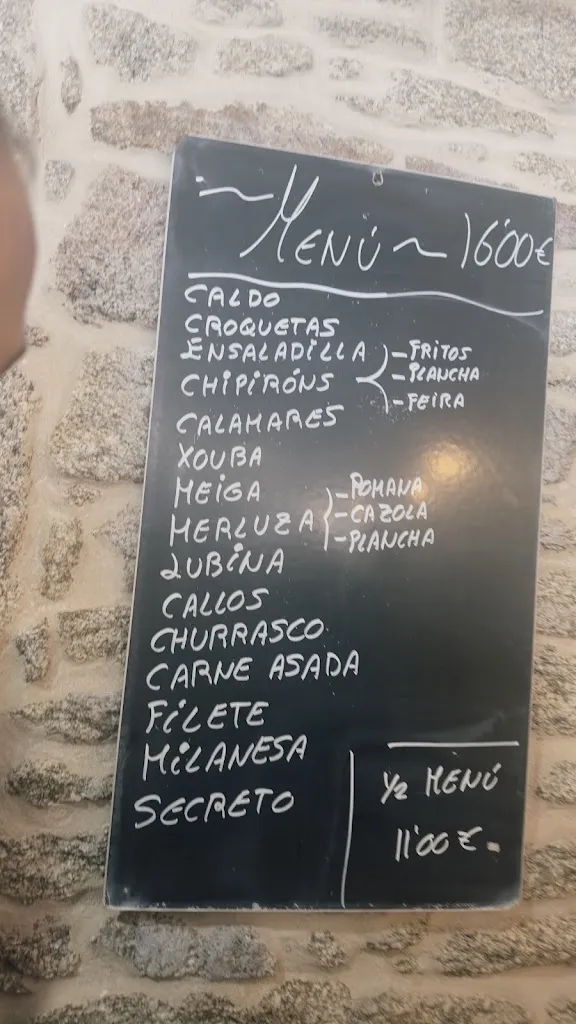 ~ MENÚ ~ 16'00€
CALDO
CROQUETAS
ENSALADILLA
CHIPIRÓNS
- FRITOS
- PLANCHA
- FEIRA
CALAMARES
XOUBA
MEIGA
MERLUZA
- ROMANA
- CAZOLA
- PLANCHA
LUBINA
CALLOS
CHURRASCO
CARNE ASADA
FILETE
MILANESA
SECRETO
1/2 MENÚ
11'00 €.